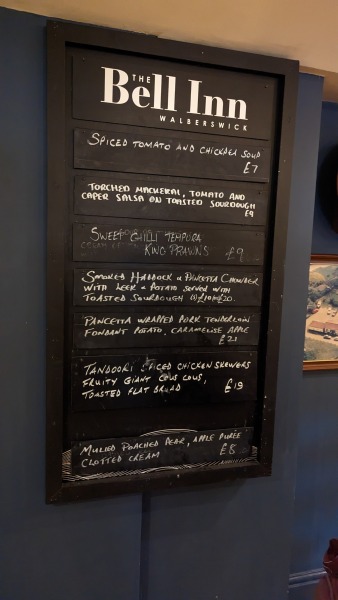 THE
Bell Inn
WALBERSWICK
SPICED TOMATO AND CHICKPEA SOUP
£7
TORCHED MACKERAL, TOMATO AND
CAPER SALSA ON TOASTED SOURDOUGH
£9
SWEET CHILLI TEMPURA
KING PRAWNS £9
SMOKED HADDOCK & PANCETTA CHOWDER
WITH LEEK & POTATO SERVED WITH
TOASTED SOURDOUGH £20
PANCETTA WRAPPED PORK TENDERLOIN
FONDANT POTATO, CARAMELISE APPLE
£21
TANDOORI SPICED CHICKEN SKEWERS
FRUITY GIANT COUS COUS,
TOASTED FLAT BREAD £19
MULLED POACHED PEAR, APPLE PUREE
CLOTTED CREAM £8